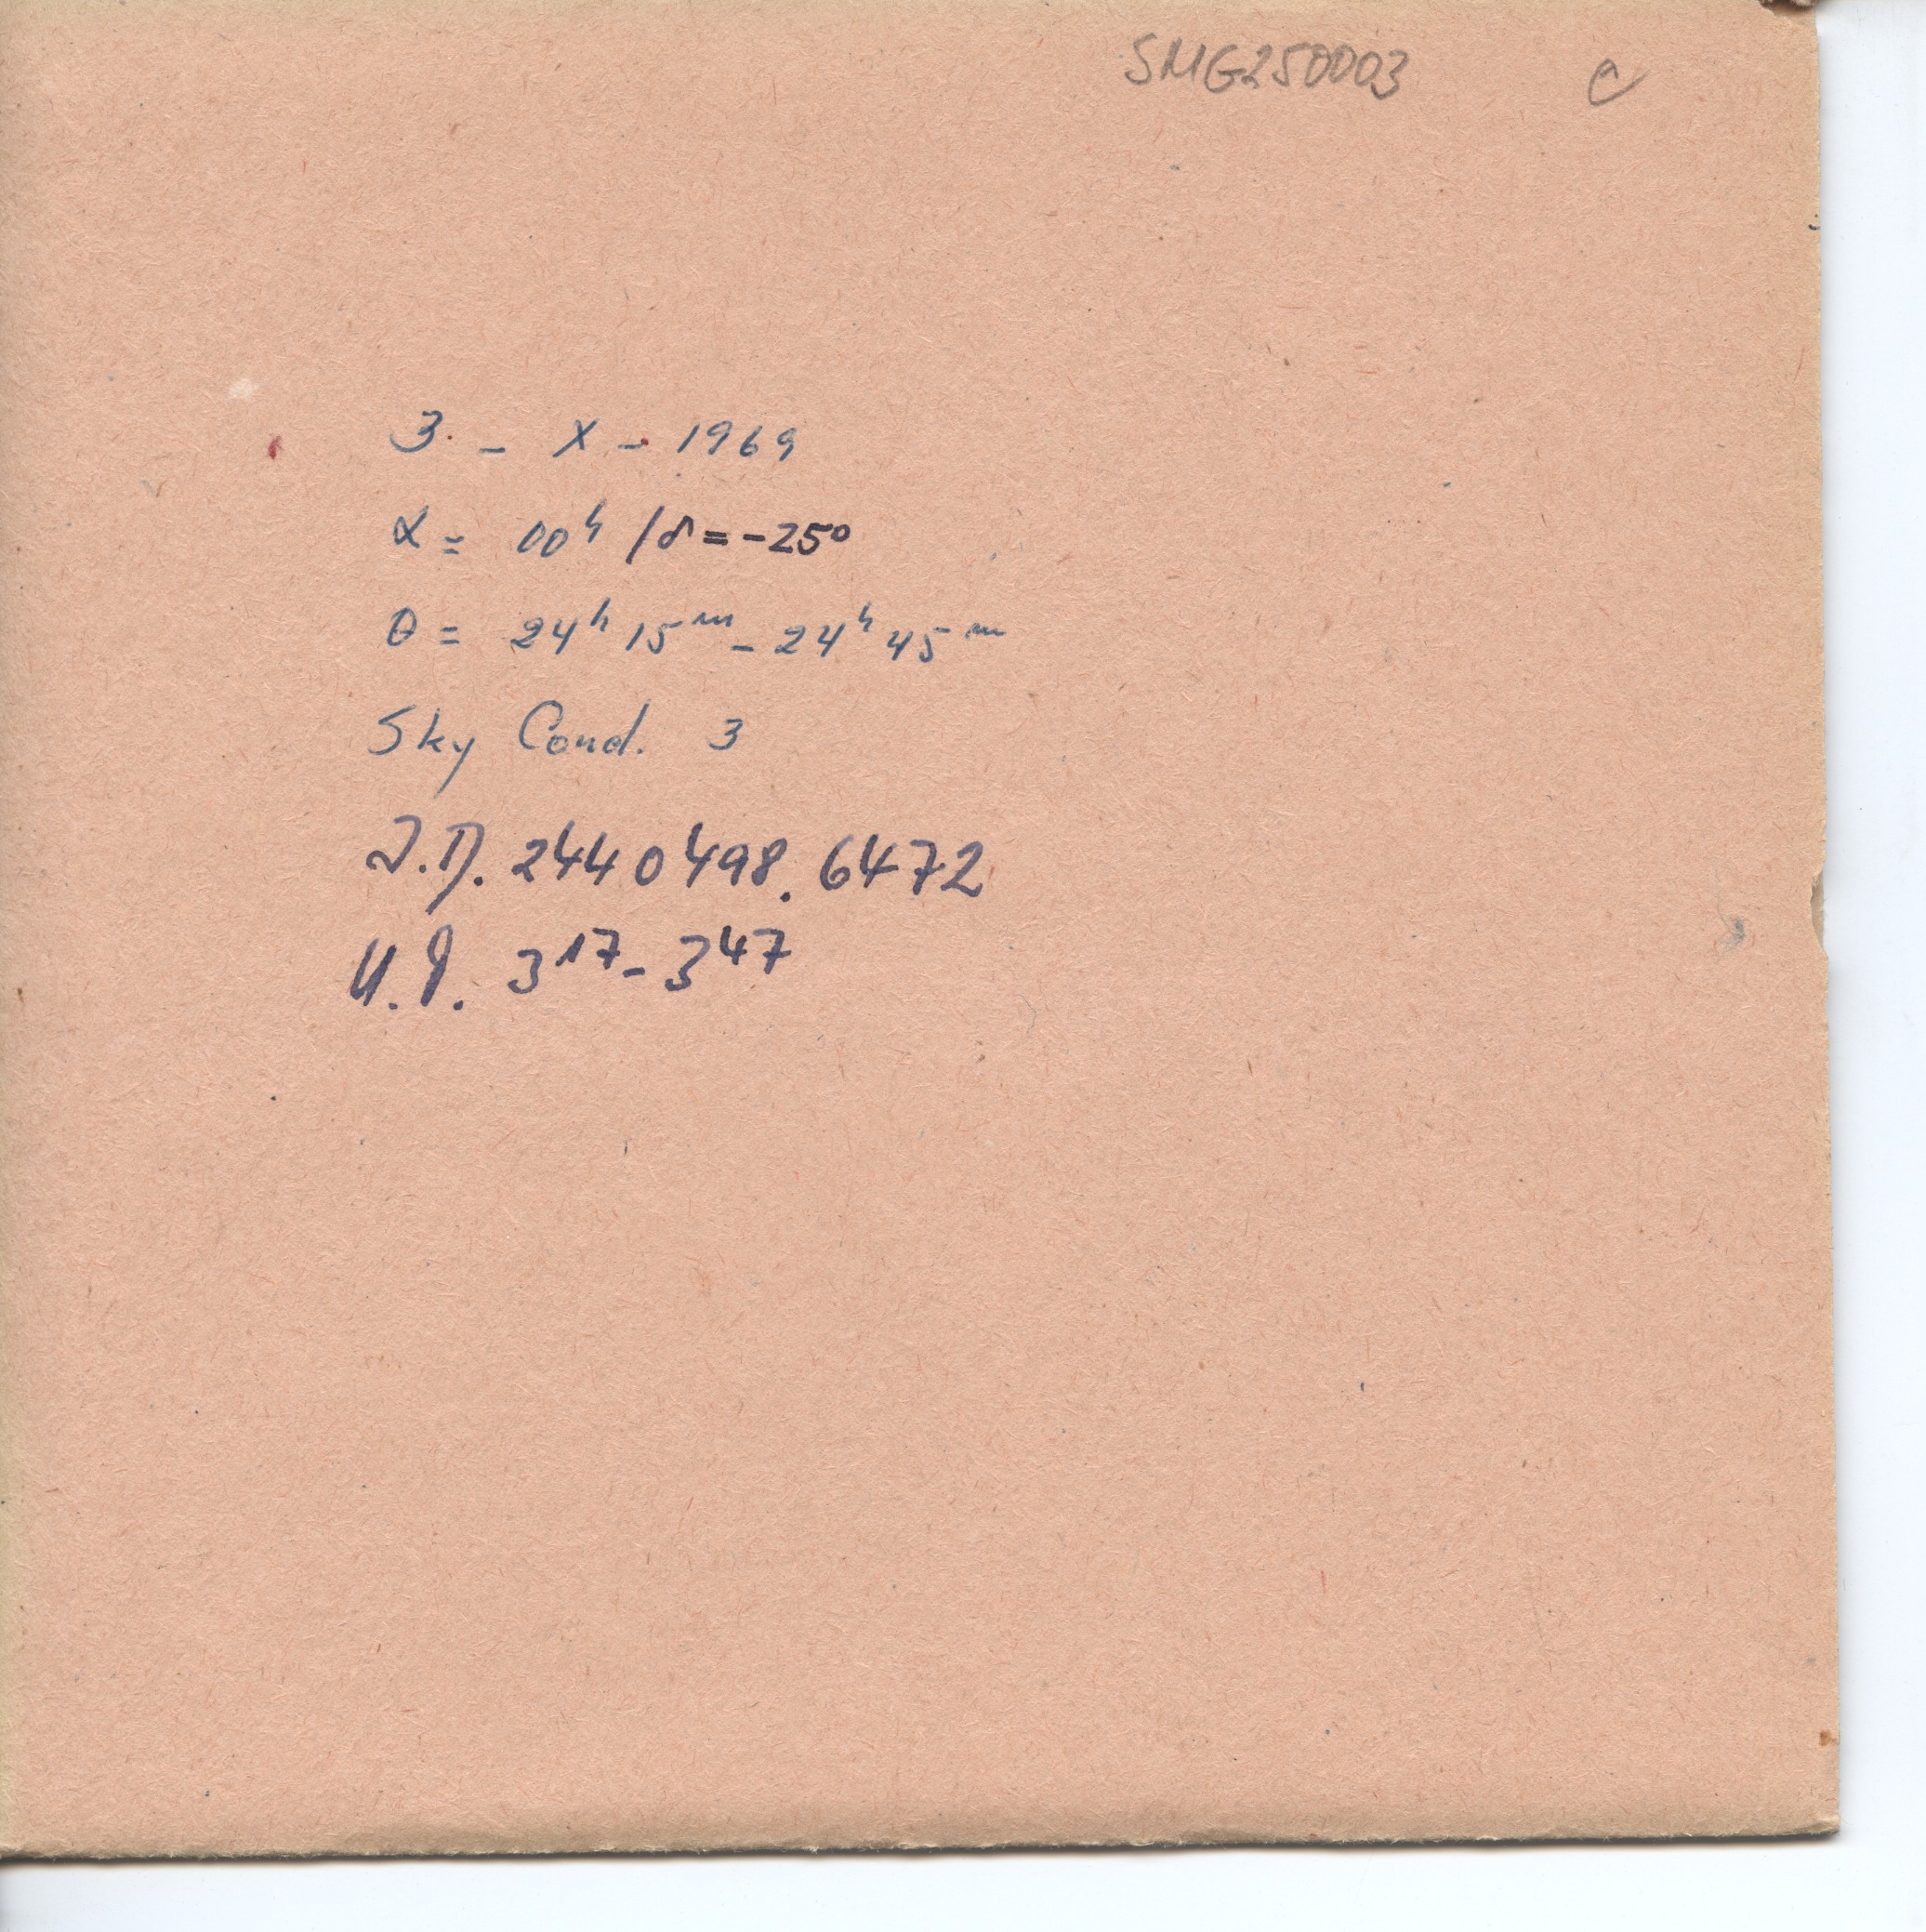 SMG250003 c
3. - X - 1969
α = 00ʰ / δ = -25°
θ = 24ʰ 15ᵐ - 24ʰ 45ᵐ
Sky Cond. 3
J.D. 2440498.6472
U.T. 3¹⁷ - 3⁴⁷